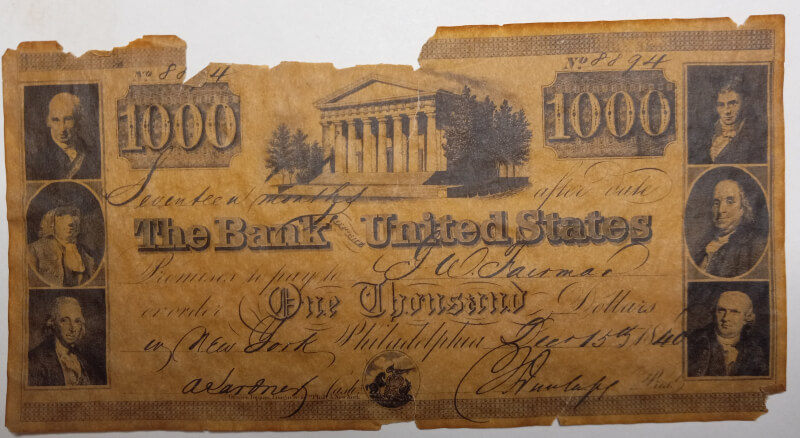 No 8894
No 8894
1000
1000
Seventeen months after date
The Bank of the United States
Promises to pay to J. W. Fairman
or order One Thousand Dollars
in New York Philadelphia Decr 15th 1840
Cash
Prest